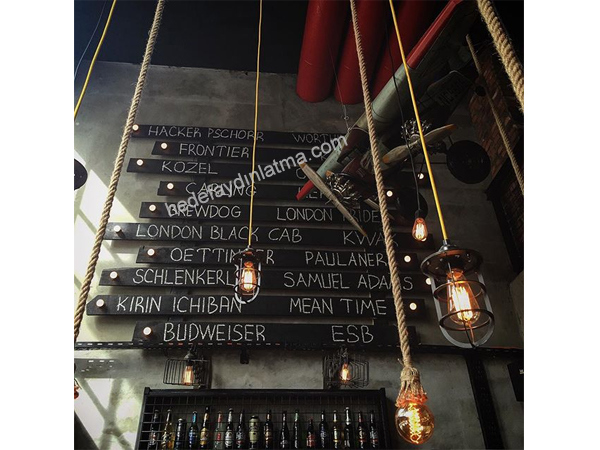 HACKER PSCHORR WORTH
FRONTIER
KOZEL
BREWDOG LONDON PRIDE
LONDON BLACK CAB KWAK
OETTINGER PAULANER
SCHLENKERLA SAMUEL ADAMS
KIRIN ICHIBAN MEAN TIME
BUDWEISER ESB
hedefaydinlatma.com